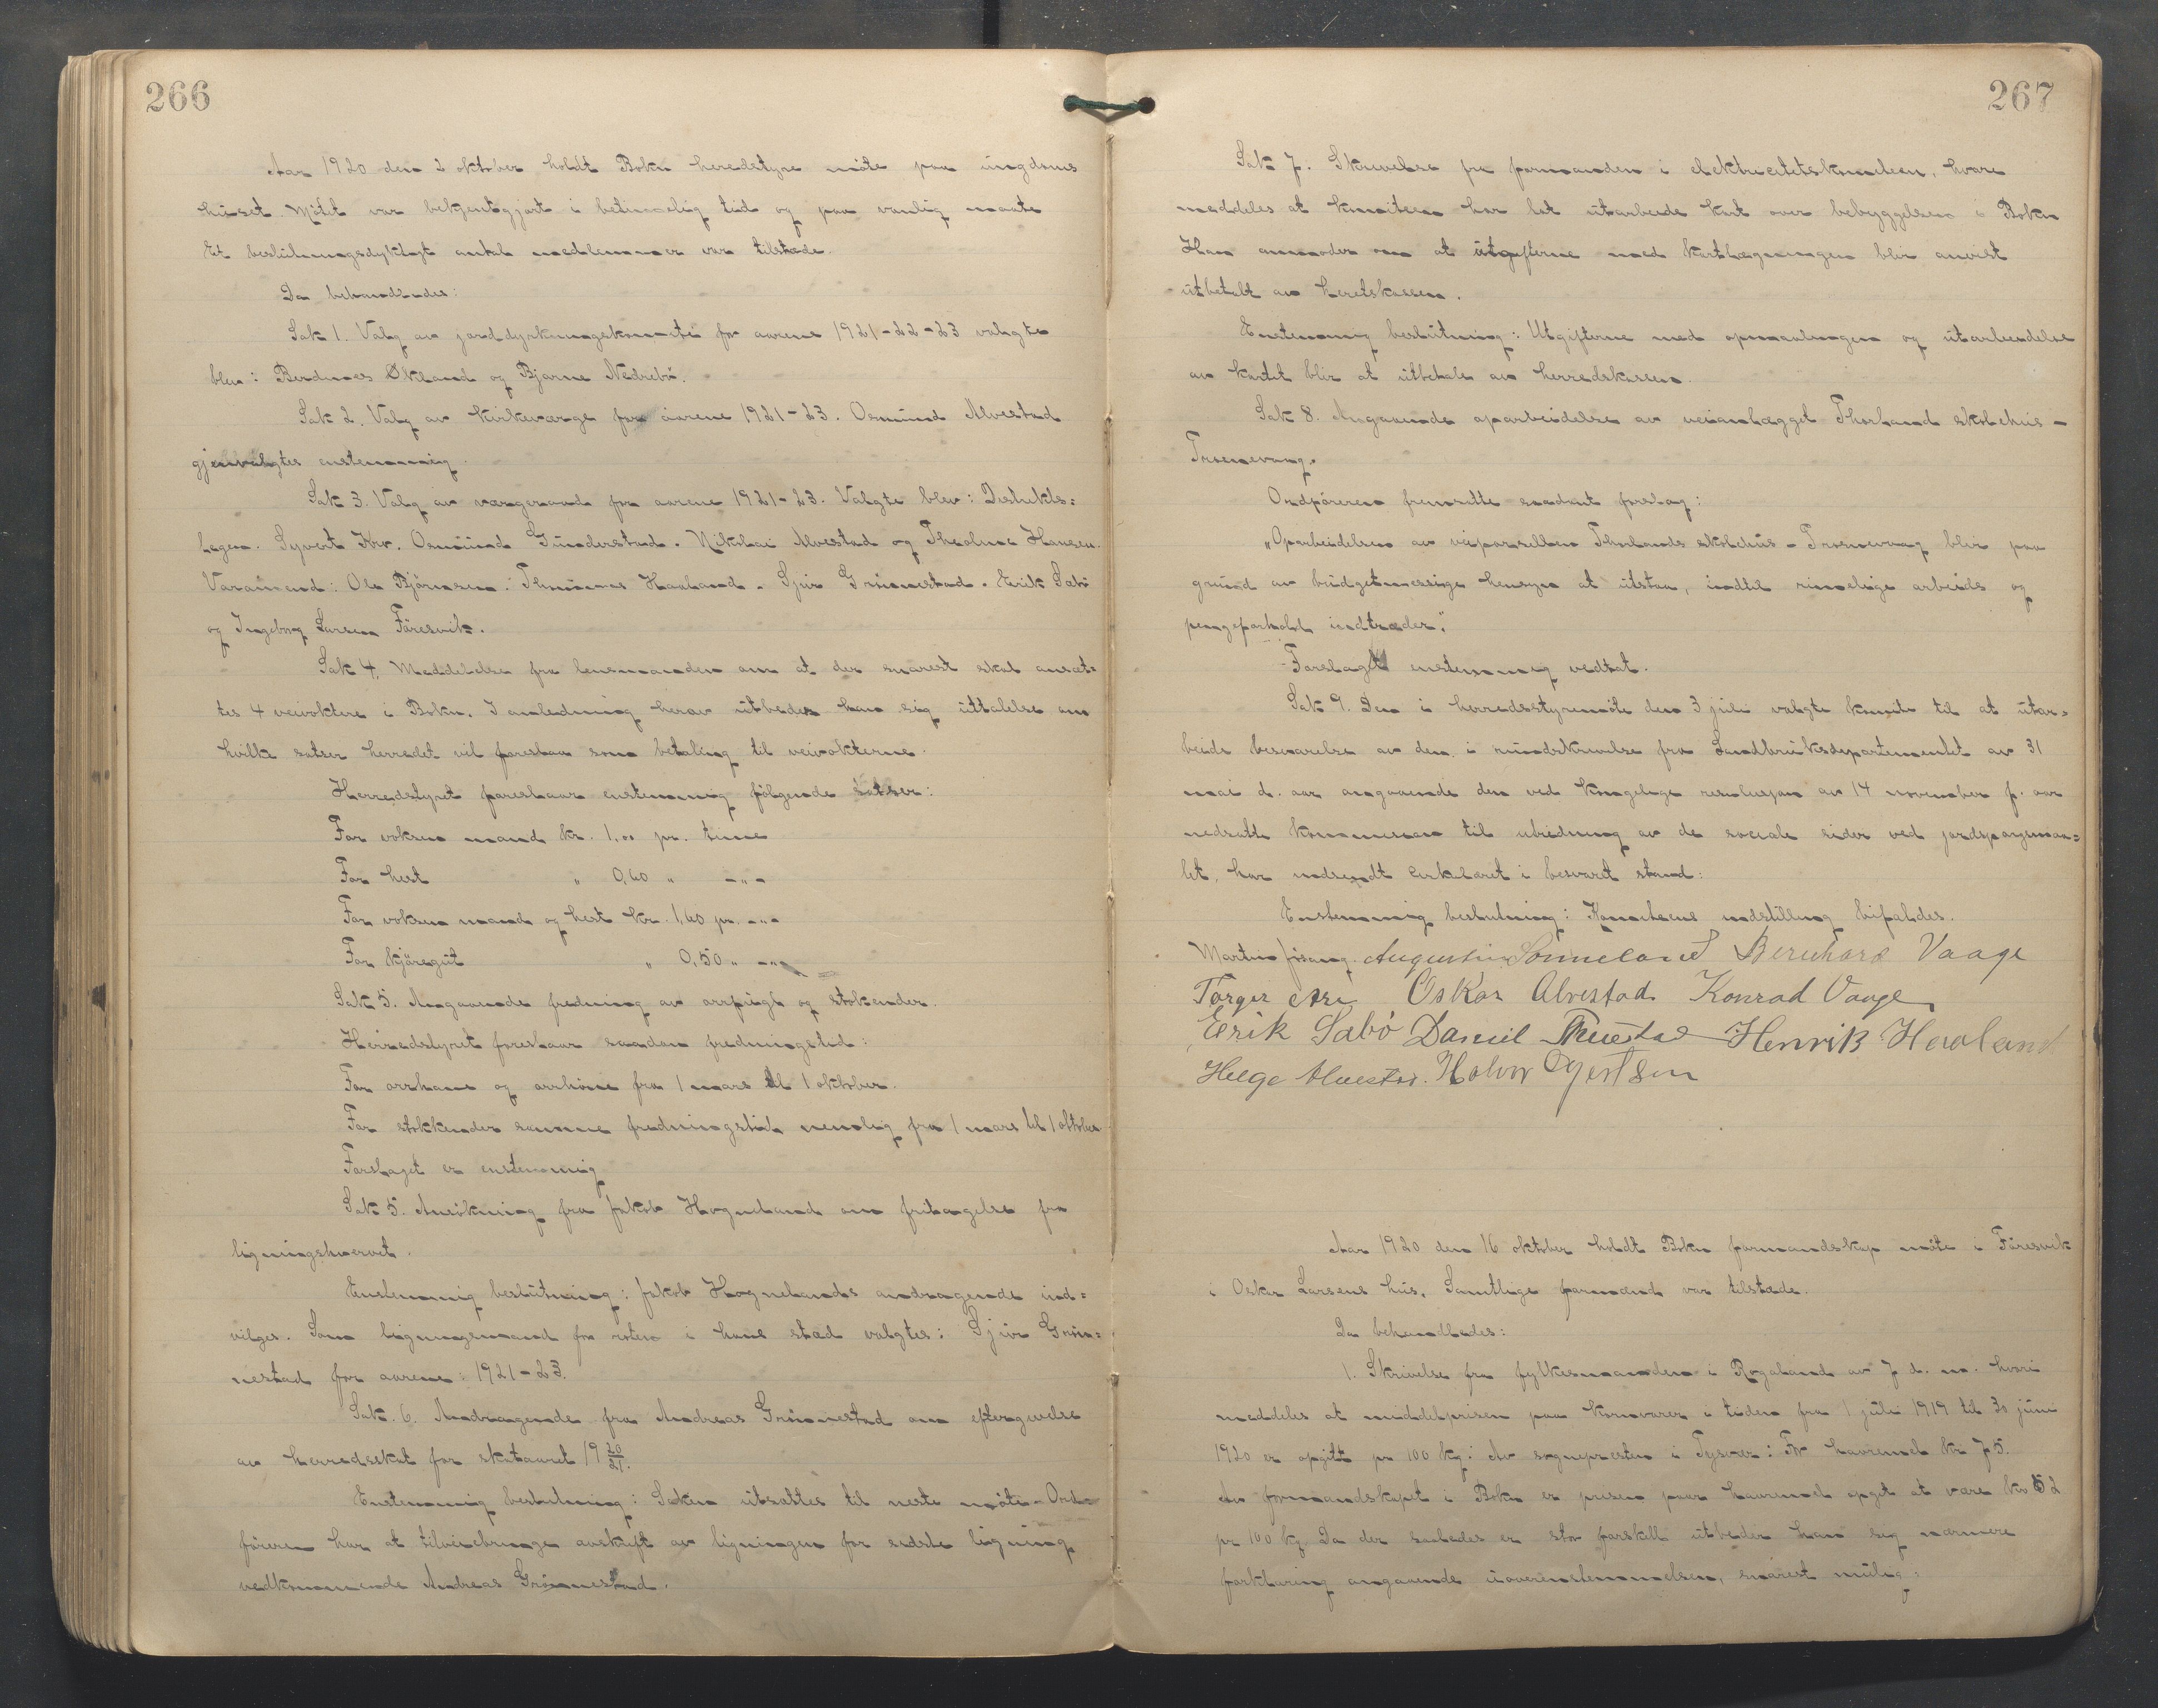 266
Aar 1920 den 2 oktober holdt Bokn heredstyre möte paa ungdoms
huset. Mötet var bekjentgjort i betimelig tid og paa vanlig maate
Et beslutningsdyktigt antal medlemmer var tilstede.
Da behandledes:
Sak 1. Valg av jorddyrkningskomite for aarene 1921-22-23 valgte
blev: Berdines Økland og Bjarne Nedrebö.
Sak 2. Valg av kirkeværge for aarene 1921-23. Osmund Alvestad
gjenvalgtes enstemmig.
Sak 3. Valg av vergeraad for aarene 1921-23. Valgte blev: Distrikts=
lægen. Syvert Krv. Osmund Gunderstad. Nikolai Alvestad og Theoline Hansen.
Varamænd: Ole Björnsen. Thomas Haaland. Sjur Grönnestad. Erik Sabö
og Ingeborg Larsen Föresvik.
Sak 4. Meddelelse fra lensmanden om at der snarest skal ansæt=
tes 4 veivoktere i Bokn. I anledning herav utbeder han sig uttalelse om
hvilke satser herredet vil foreslaa som betaling til veivokterne.
Herredstyret foreslaar enstemmig fölgende satser:
For voksen mand kr. 1,00 pr. time
For hest " 0,60 " -"-
For voksen mand og hest kr. 1,60 pr. -"-
For kjöregut " 0,50 " -"-
Sak 5. Angaaende fredning av orrfugl og stokender.
Herredstyret foreslaar saadan fredningstid:
For orrhane og orrhöne fra 1 mars til 1 oktober.
For stokkender samme fredningstid nemlig fra 1 mars til 1 oktober
Forslaget er enstemmig
Sak 5. Ansökning fra Jakob Hogneland om fritagelse fra
ligningshvervet.
Enstemmig beslutning: Jakob Hognelands andragende ind=
vilges. Som ligningsmand for resten i hans sted valgtes: Sjur Grön=
nestad for aarene: 1921-23.
Sak. 6. Andragende fra Andreas Grönnestad om eftergivelse
av herredsskat for skataaret 1920/21.
Enstemmig beslutning: Saken utsættes til neste möte. Ord=
föreren har at tilveiebringe avskrift av ligningen for sidste ligning
vedkommende Andreas Grönnestad.
267
Sak 7. Skrivelse fra formanden i elektricitetskomiteen, hvori
meddeles at komiteen har lat utarbeide kart over bebyggelsen i Bokn
Han anmoder om at utgifterne med kartlægningen blir anvist
utbetalt av heretskassen.
Enstemmig beslutning: Utgifterne med opmaalingen og utarbeidelse
av kartet blir at utbetale av herredskassen.
Sak 8. Angaaende oparbeidelse av veianlægget Thorland skolehus -
Trosnevaag.
Ordföreren fremsatte saadant forslag:
"Oparbeidelsen av veiparsellen Thorlands skolehus - Trosnevaag blir paa
grund av budgetmessige hensyn at utstaa, indtil rimelige arbeids og
pengeforhold indtræder."
Forslaget enstemmig vedtat.
Sak 9. Den i herredsstyremöte den 3 juli valgte komite til at utar=
beide besvarelse av den i rundskrivelse fra Landbruksdepartementet av 31
mai d. aar angaaende den ved kongelige resolusjon av 14 november f. aar
nedsatte kommission til utredning av de sociale sider ved jordspörsmaa=
let, har indsendt cirkulæret i besvaret stand:
Enstemmig beslutning: Komiteens indstilling bifaldes.
Martin Jösang. Augustin Sönneland Bernhard Vaage
Torger Are Oskar Alvestad Konrad Vaage
Erik Sabö Daniel Henrik Haaland
Helge Alvestad. Halvor Gjertsen
Aar 1920 den 16 oktober holdt Bokn formandskap möte i Föresvik
i Oskar Larsens hus. Samtlige formænd var tilstede.
Da behandledes:
1. Skrivelse fra fylkesmanden i Rogaland av 7 d. m. hvori
meddeles at middelprisen paa kornvarer i tiden fra 1 juli 1919 til 30 juni
1920 er opgitt pr 100 kg: Av sognepresten i Tysvær: For havremel kr 75.
Av formandskapet i Bokn er prisen paa havremel opgit at være kr 52
pr 100 kg. Da der saaledes er stor forskell utbeder han sig nærmere
forklaring angaaende uoverenstemmelsen, snarest mulig: